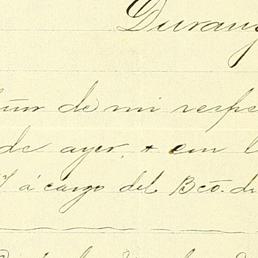 Durang
de mi respe
de ayer, + con l
7 á cargo del Bco. de